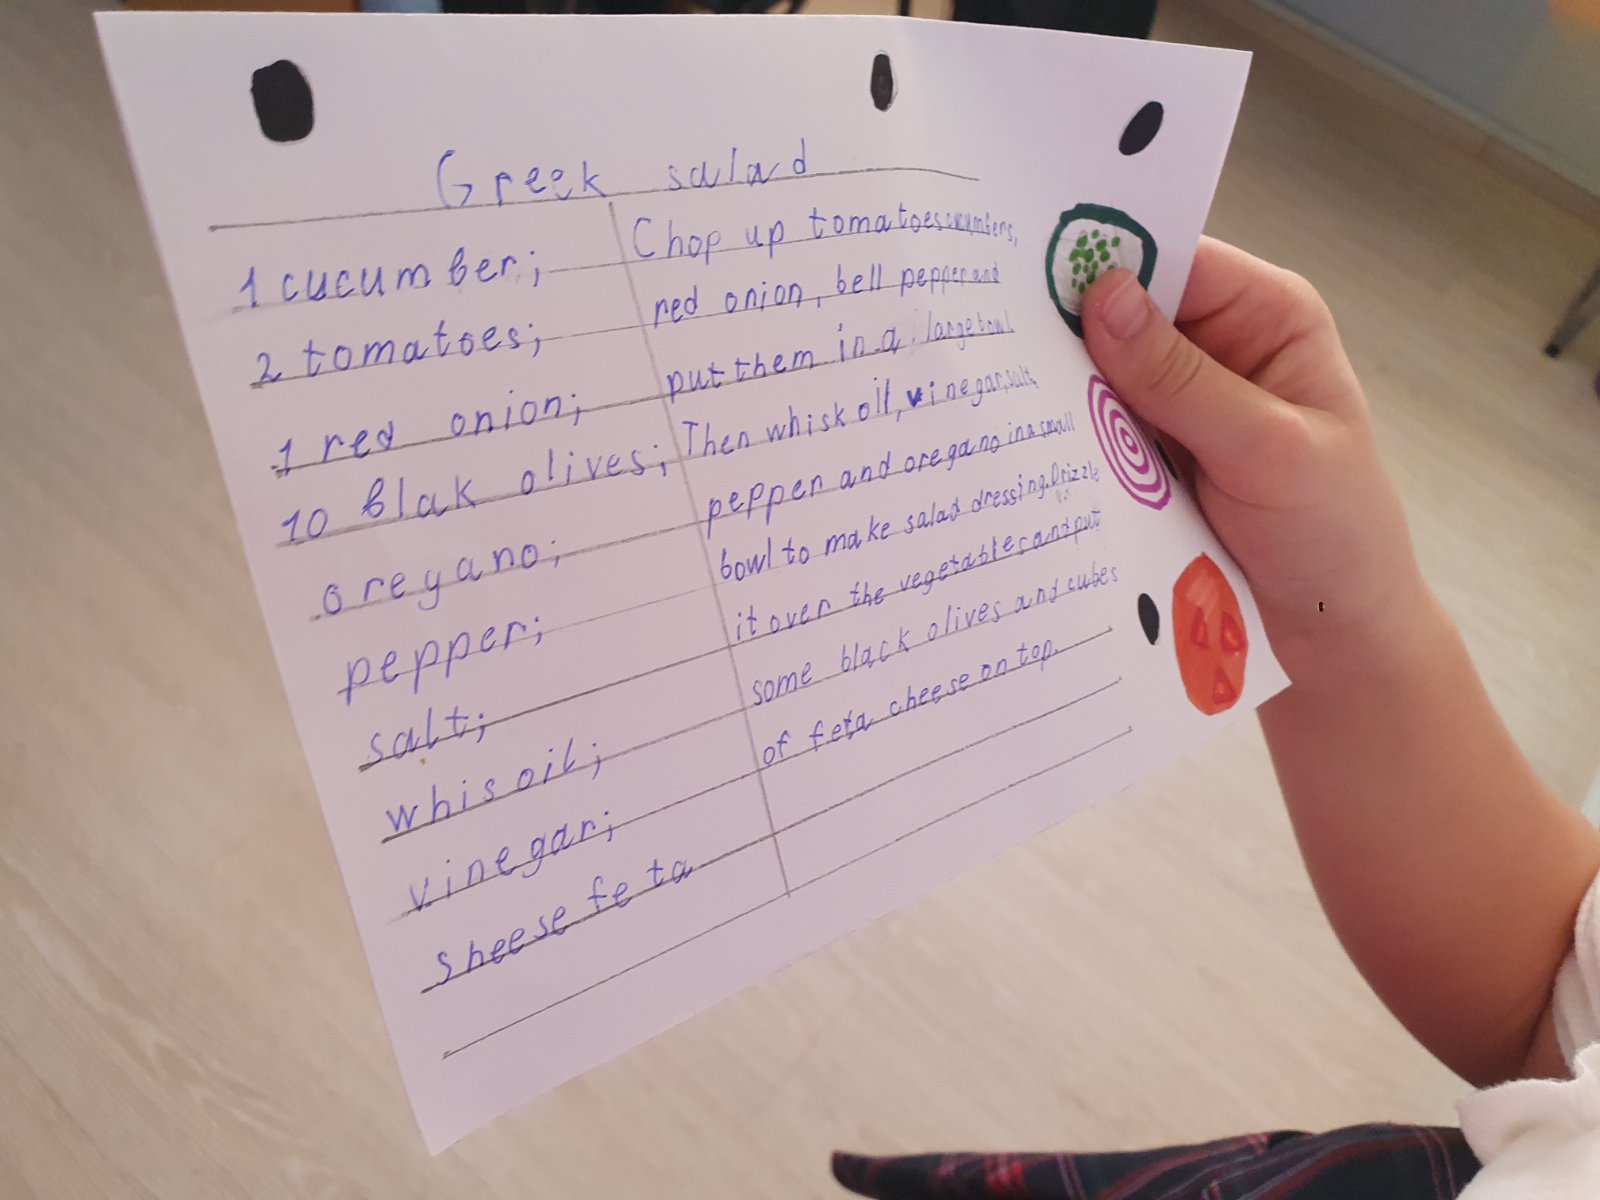 Greek salad
1 cucumber;
2 tomatoes;
1 red onion;
10 blak olives;
oregano;
pepper;
salt;
whisoil;
vinegar;
sheese feta
Chop up tomatoes cucumbers,
red onion, bell pepper and
put them in a large bowl.
Then whisk oil, vinegar, salt,
pepper and oregano in a small
bowl to make salad dressing. Drizzle
it over the vegetables and put
some black olives and cubes
of feta cheese on top.